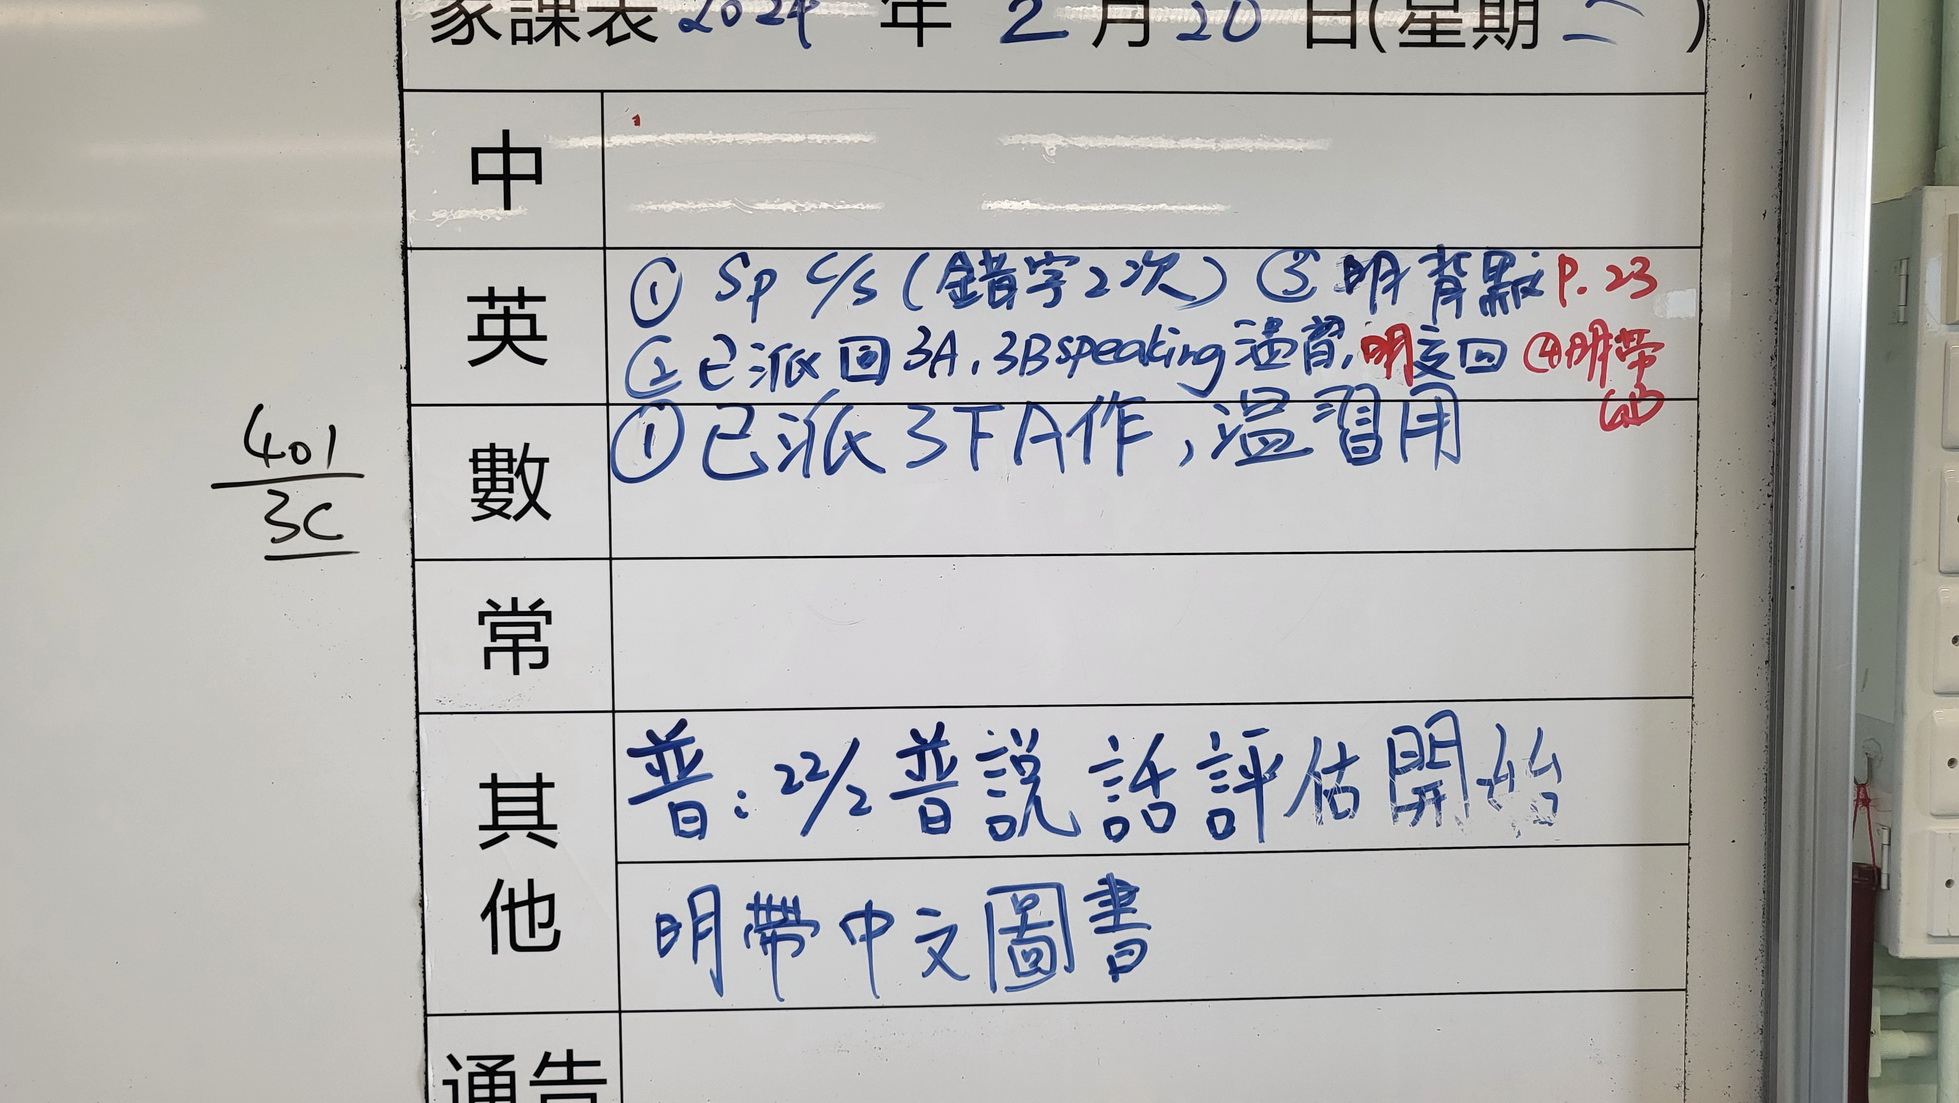 家課表 2024 年 2 月 20 日(星期 二 )
中
英
① Sp c/s (錯字2次) ③ 明背默 P.23
② 已派回 3A, 3B speaking 溫習, 明交回 ④明帶
GB
數
① 已派 3TA作, 溫習用
401
3C
常
其他
普: 22/2 普說話評估開始
明帶中文圖書
通告